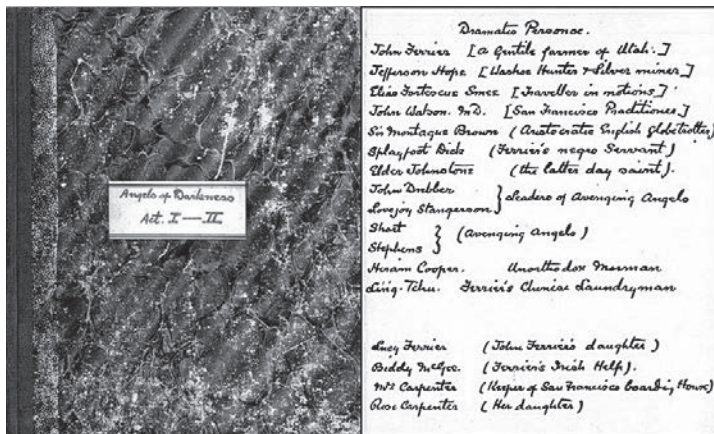 Angels of Darkness
Act. I — II
Dramatis Personae.
John Ferrier [A Gentile farmer of Utah.]
Jefferson Hope [Washoe Hunter & Silver miner]
Elias Fortescue Smee [Traveller in notions]
John Watson. M.D. [San Francisco Practitioner]
Sir Montague Brown (Aristocratic English globetrotter)
Splayfoot Dick (Ferrier's negro Servant)
Elder Johnstone (the latter day saint).
John Drebber
Lovejoy Stangerson } Leaders of Avenging Angels
Stephens } (Avenging Angels)
Hiram Cooper. Unorthodox Mormon
Ling-Tchu. Ferrier's Chinese Laundryman
Lucy Ferrier (John Ferrier's daughter)
Biddy McGee. (Ferrier's Irish Help).
Mrs Carpenter (Keeper of San Francisco boarding House)
Rose Carpenter (Her daughter)